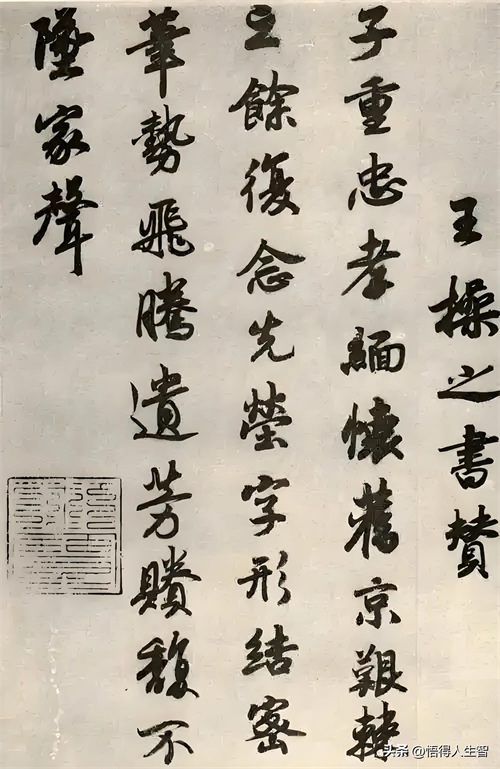 王操之書贊
子重忠孝緬懷舊京艱棘
之餘復念先塋字形結密
筆勢飛騰遺芳賸馥不
墜家聲
头条 @悟得人生智